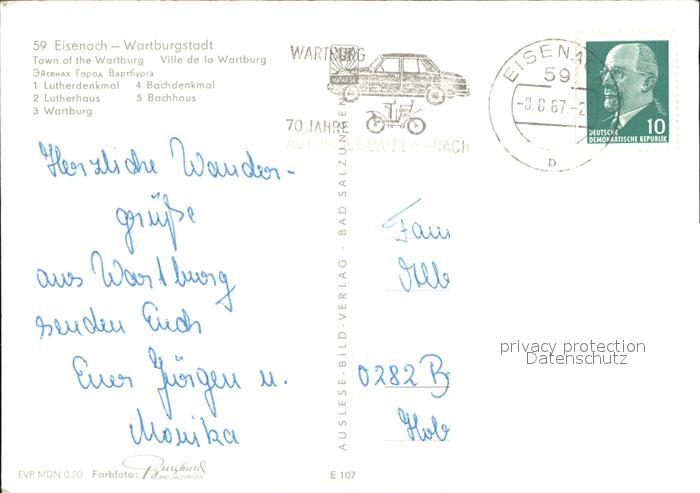 59 Eisenach – Wartburgstadt
Town of the Wartburg Ville de la Wartburg
Эйсенах Город Вартбурга
1 Lutherdenkmal 4 Bachdenkmal
2 Lutherhaus 5 Bachhaus
3 Wartburg
WARTBURG
70 JAHRE
AUTOMOBILBAU EISENACH
EISENA
59
-8.8.67.-2
b
10
DEUTSCHE
DEMOKRATISCHE REPUBLIK
Herzliche Wander-
grüße
aus Wartburg
senden Euch
Euer Jürgen u.
Monika
Fam
Alb
0282 B
Hob
privacy protection
Datenschutz
AUSLESE-BILD-VERLAG · BAD SALZUNGEN
EVP MDN 0,20 Farbfoto: Burghard
BAD SALZUNGEN
E 107